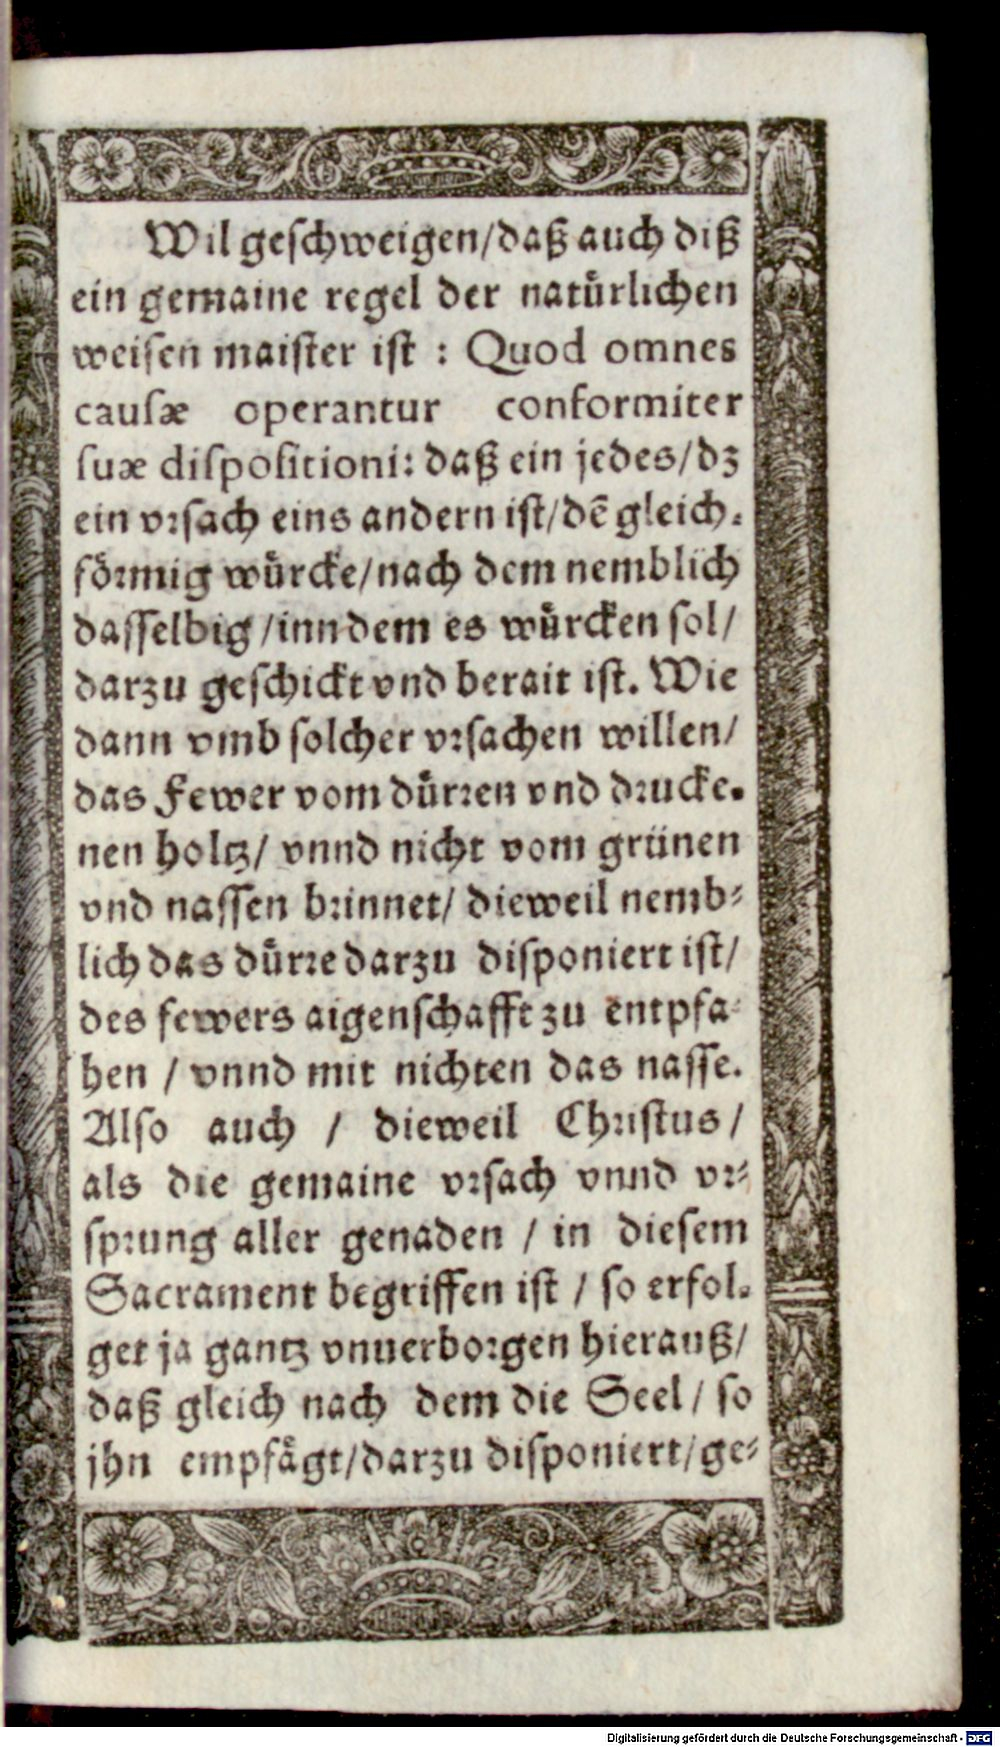 Wil geschweigen/daß auch diß
ein gemaine regel der natuͤrlichen
weisen maister ist : Quod omnes
causæ operantur conformiter
suæ dispositioni: daß ein jedes/dz
ein vrsach eins andern ist/dẽ gleich-
foͤrmig wuͤrcke/nach dem nemblich
dasselbig/inn dem es wuͤrcken sol/
darzu geschickt vnd berait ist. Wie
dann vmb solcher vrsachen willen/
das Fewer vom duͤrren vnd drucke-
nen holtz/ vnnd nicht vom grünen
vnd nassen brinnet/ dieweil nemb-
lich das duͤrre darzu disponiert ist/
des fewers aigenschafft zu entpfa-
hen / vnnd mit nichten das nasse.
Also auch / dieweil Christus/
als die gemaine vrsach vnnd vr-
sprung aller genaden / in diesem
Sacrament begriffen ist / so erfol-
get ja gantz vnuerborgen hierauß/
daß gleich nach dem die Seel/ so
jhn empfaͤgt/darzu disponiert/ge-
Digitalisierung gefördert durch die Deutsche Forschungsgemeinschaft - DFG